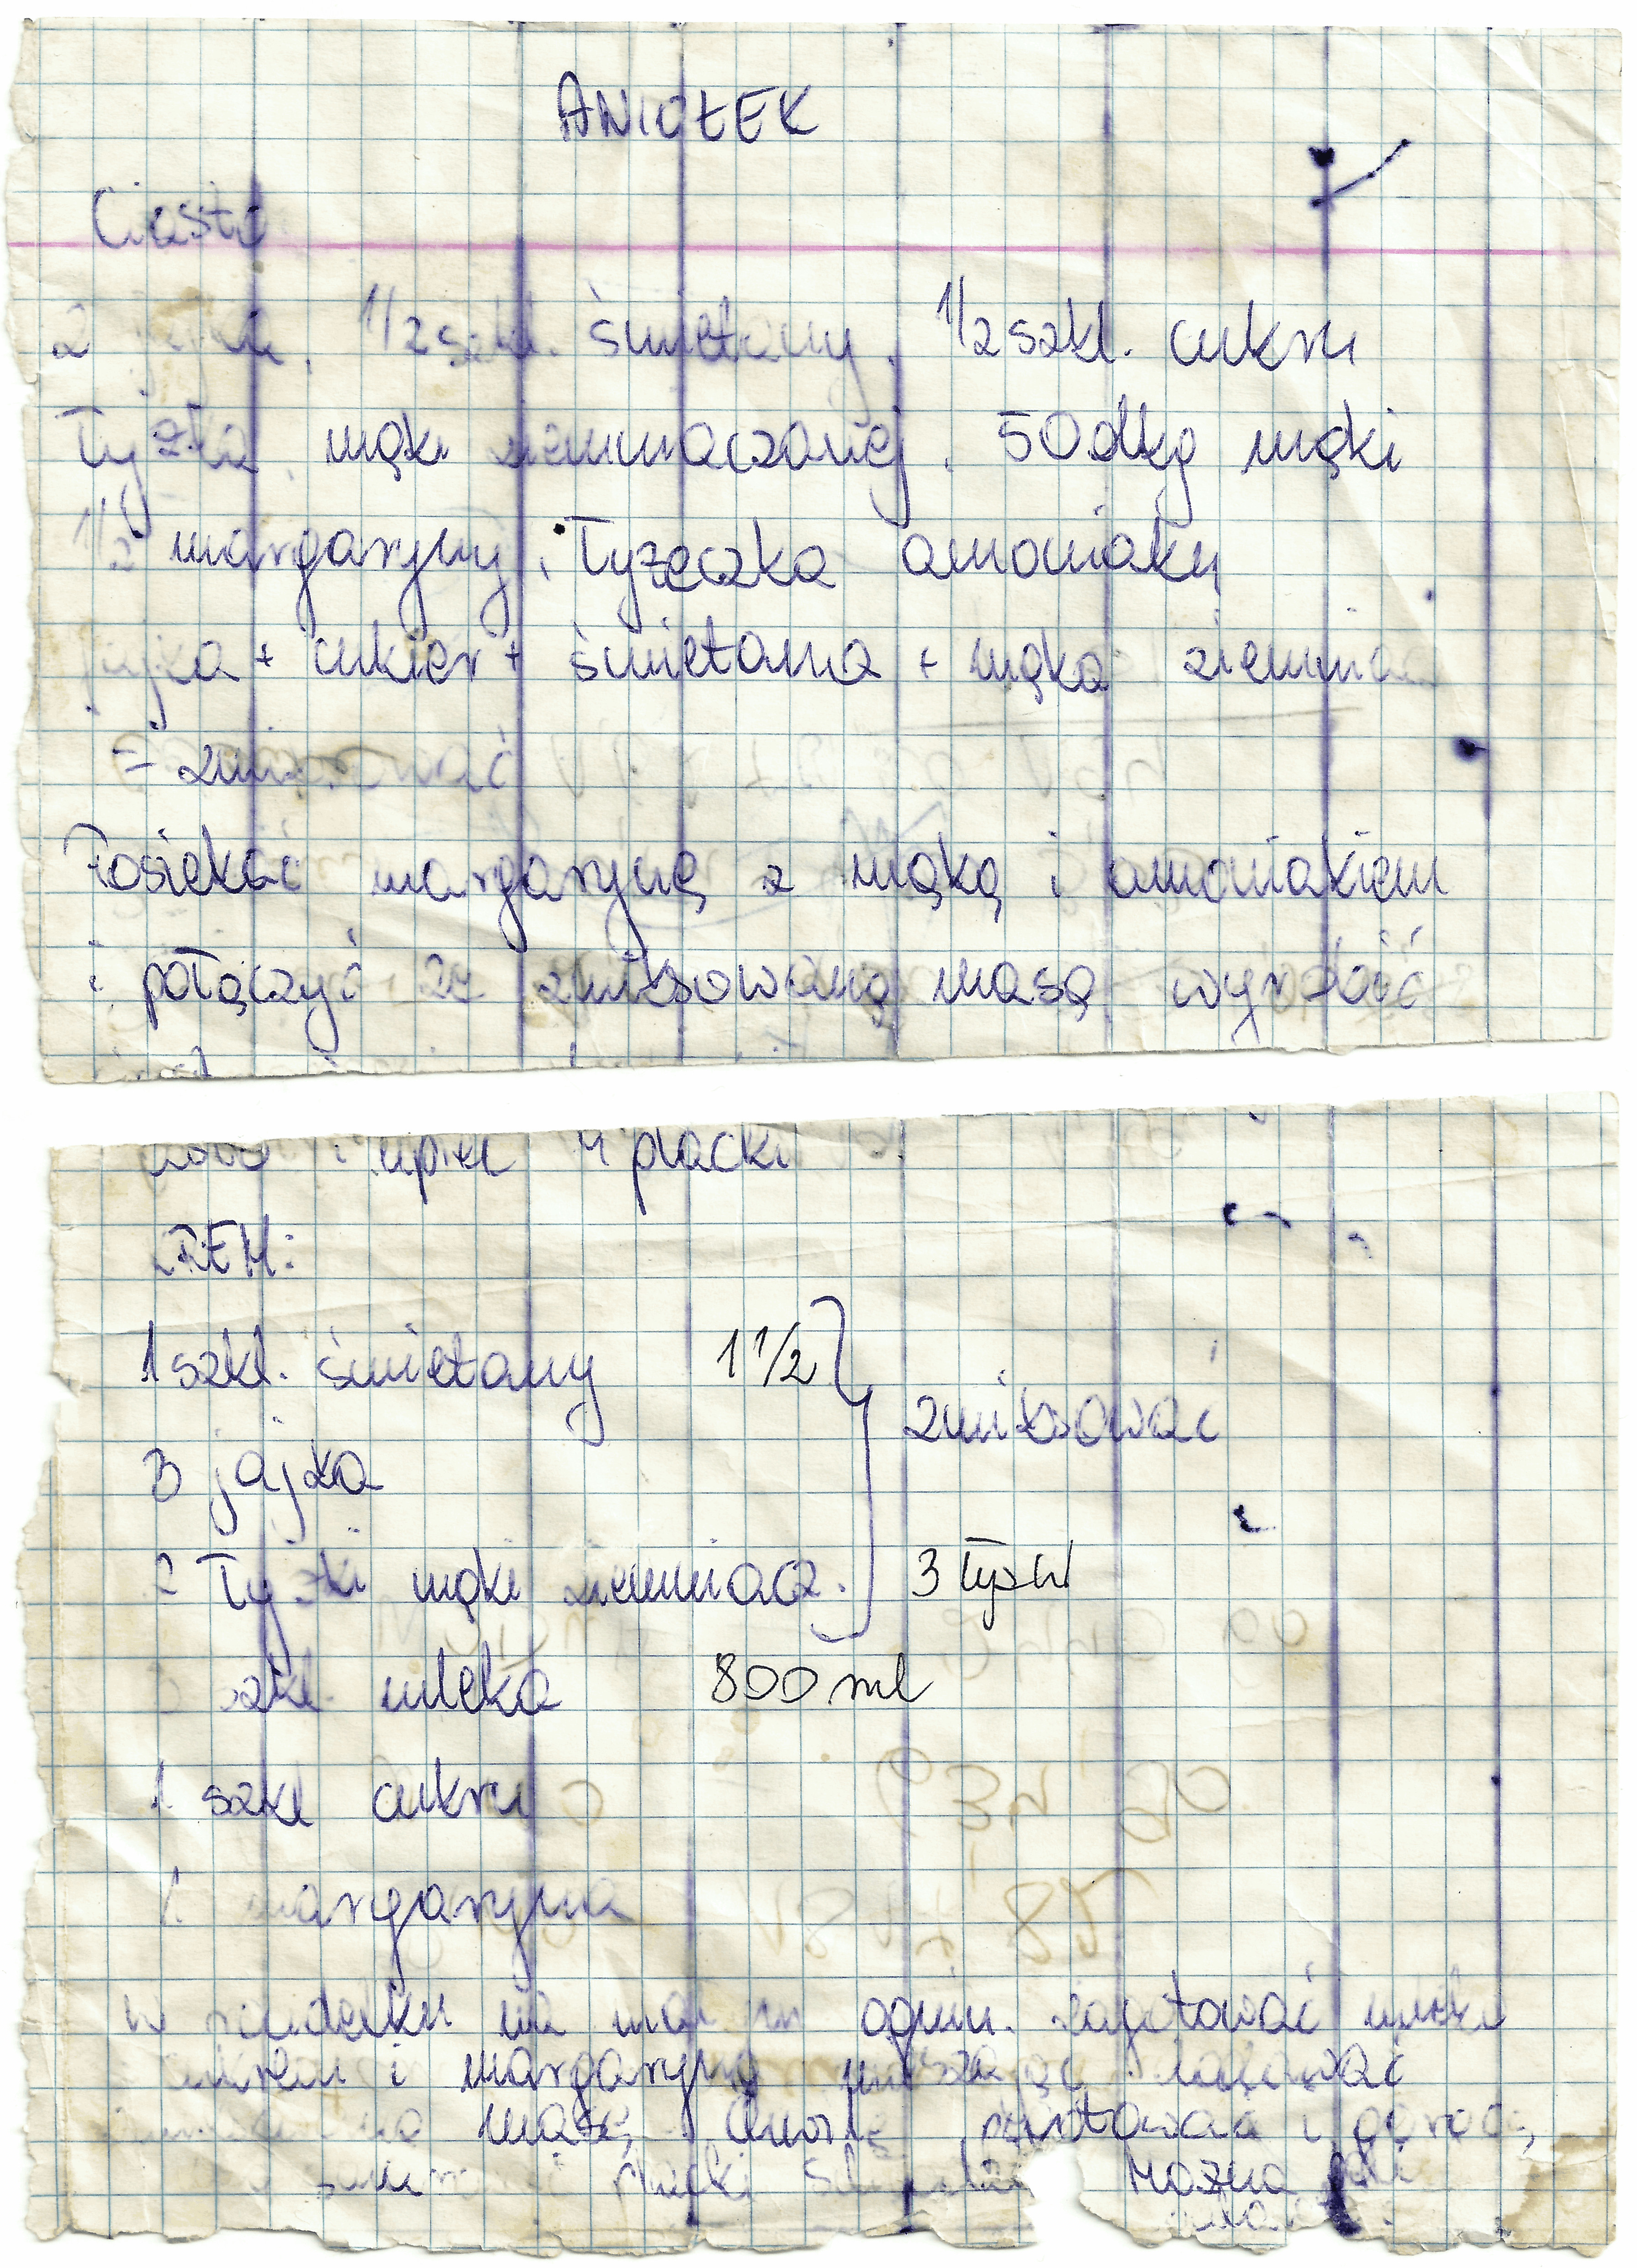 ANIOŁEK
Ciasto
2 jajka, 1/2 szkl. śmietany, 1/2 szkl. cukru
Łyżka mąki ziemniaczanej, 50 dkg mąki
1/2 margaryny, Łyżeczka amoniaku
jajka + cukier + śmietana + mąka ziemniac
= zmiksować
Posiekać margarynę z mąką i amoniakiem
i połączyć ze zmiksowaną masą wyrobić
i upiec 4 placki
KREM:
1 szkl. śmietany 1 1/2
zmiksować
3 jajka
2 Łyżki mąki ziemniacz. 3 łyżki
3 szkl. mleka 800 ml
1 szkl cukru
1 margaryna
w na ogniu zagotować mleko
cukrem i margaryną mieszając
masę, chwilę i
placki Można